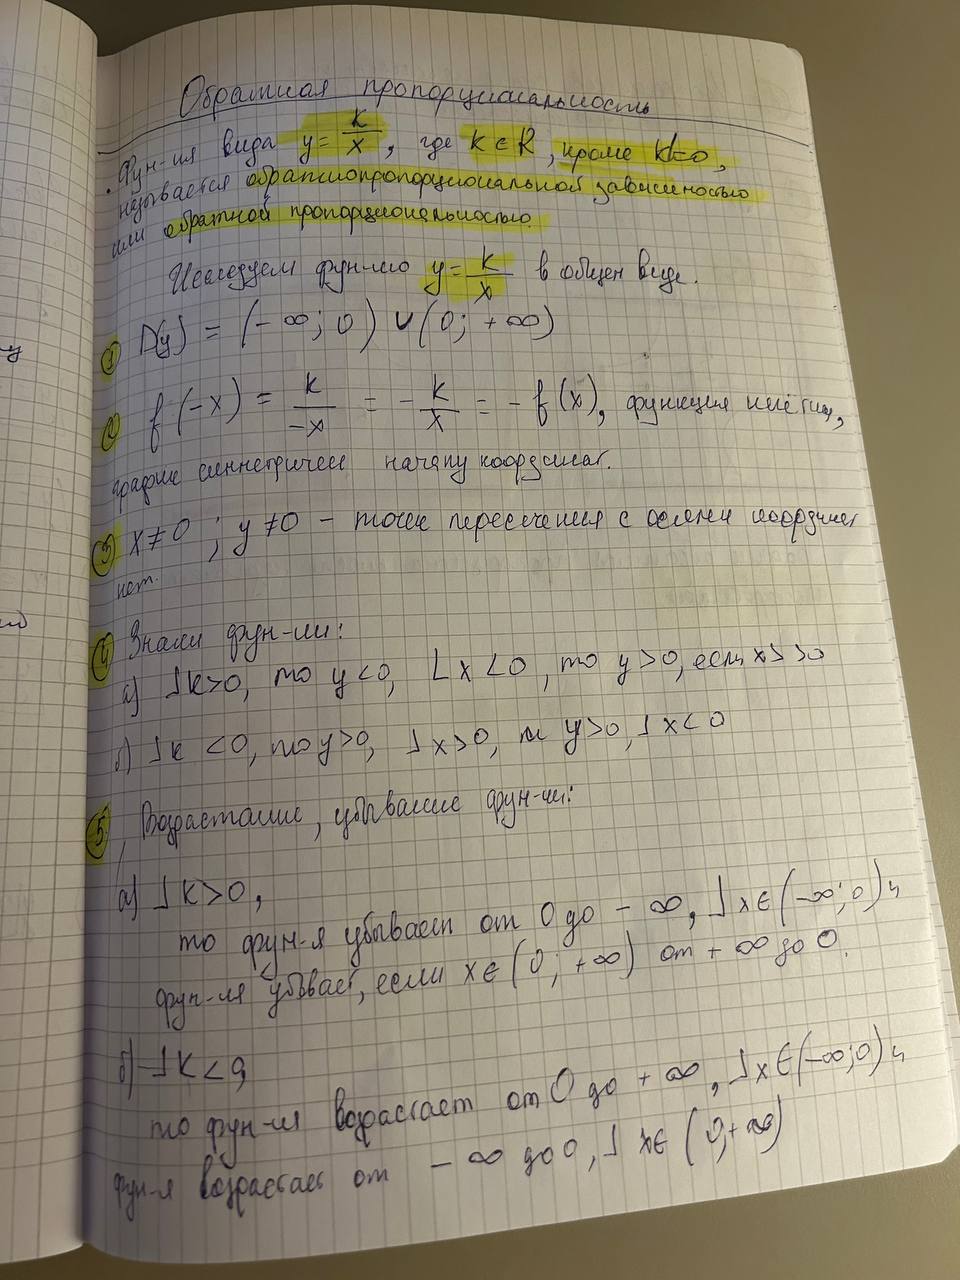 Обратная пропорциональность
Фун-ия вида y = k/x, где k ∈ R, кроме k=0,
называется обратнопропорциональной зависимостью
или обратной пропорциональностью.
Исследуем фун-ию y = k/x в общем виде.
① D(y) = (-∞; 0) ∪ (0; +∞)
② f(-x) = k/-x = - k/x = - f(x), функция нечётная,
график симметричен началу координат.
③ x≠0 ; y≠0 - точек пересечения с осями координат
нет.
④ Знаки фун-ии:
а) ⅃ k>0, то y<0, ⅃ x<0, то y>0, если x>0
б) ⅃ k<0, то y>0, ⅃ x>0, и y>0, ⅃ x<0
⑤ Возрастание, убывание фун-ии:
а) ⅃ k>0,
то фун-я убывает от 0 до -∞, ⅃ x∈(-∞;0) и
фун-ия убывает, если x∈(0; +∞) от +∞ до 0.
б) ⅃ k<0,
то фун-ия возрастает от 0 до +∞, ⅃ x∈(-∞;0) и
фун-я возрастает от -∞ до 0, ⅃ x∈(0;+∞)